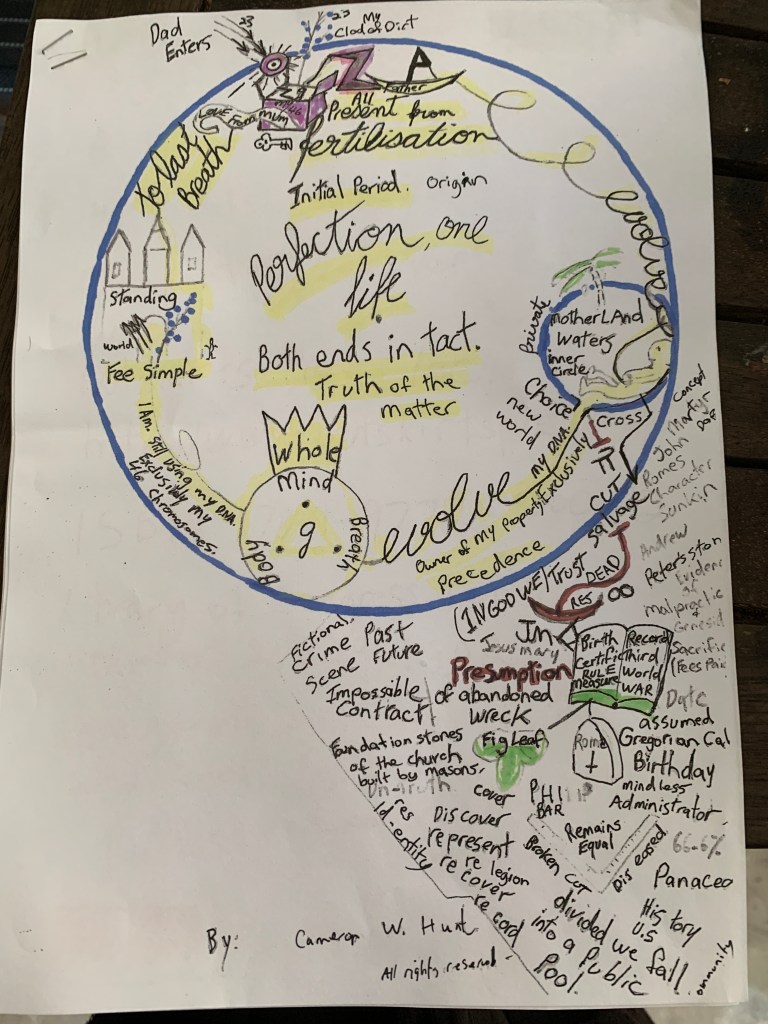 Dad
Enters
23
23
My
Clod of Dirt
Z
A
Father
Zg
Mum
LOVE From
All
Present from
fertilisation
to last
Breath
Initial Period. Origin
Perfection, one
life
Both ends in tact.
Truth of the
matter
evolve
Standing
World
Fee Simple
I Am. Still using my DNA.
Exclusively my
46 Chromosomes.
Whole
Mind
g
Body
Breath
evolve
my DNA.
Owner of My Property Exclusively
Precedence
Private
MotherLAnd
Waters
inner
Circle
Choice
new
world
Cross
CUT
Salvage
concept
Martyr
John
Romes
Character
Sunkin
Andrew
Petersston
Evidence
of
malpractic
Genesis
Sacrific
(Fees Pai
Date
(IN GOD WE) Trust
DEAD
RES
In
Jesus mary
Birth
Certific
RULE
measure
Record
Third
World
WAR
Fictional
Crime Past
Scene Future
Impossible
Contract
Presumption
of abandoned
wreck
Fig Leaf
Rome
assumed
Gregorian Cal
Birthday
mindless
Administrator
Foundation stones
of the church
built by masons,
Un-truth
res
Id-entity
cover
Discover
represent
re legion
re cover
re cord
PHI
BAR
Remains
Equal
Broken CUT
Diseased
66.6%
Panacea
His tory
U.S
divided we fall
into a Public
Pool.
ommunity
By: Cameron W. Hunt
All rights reserved